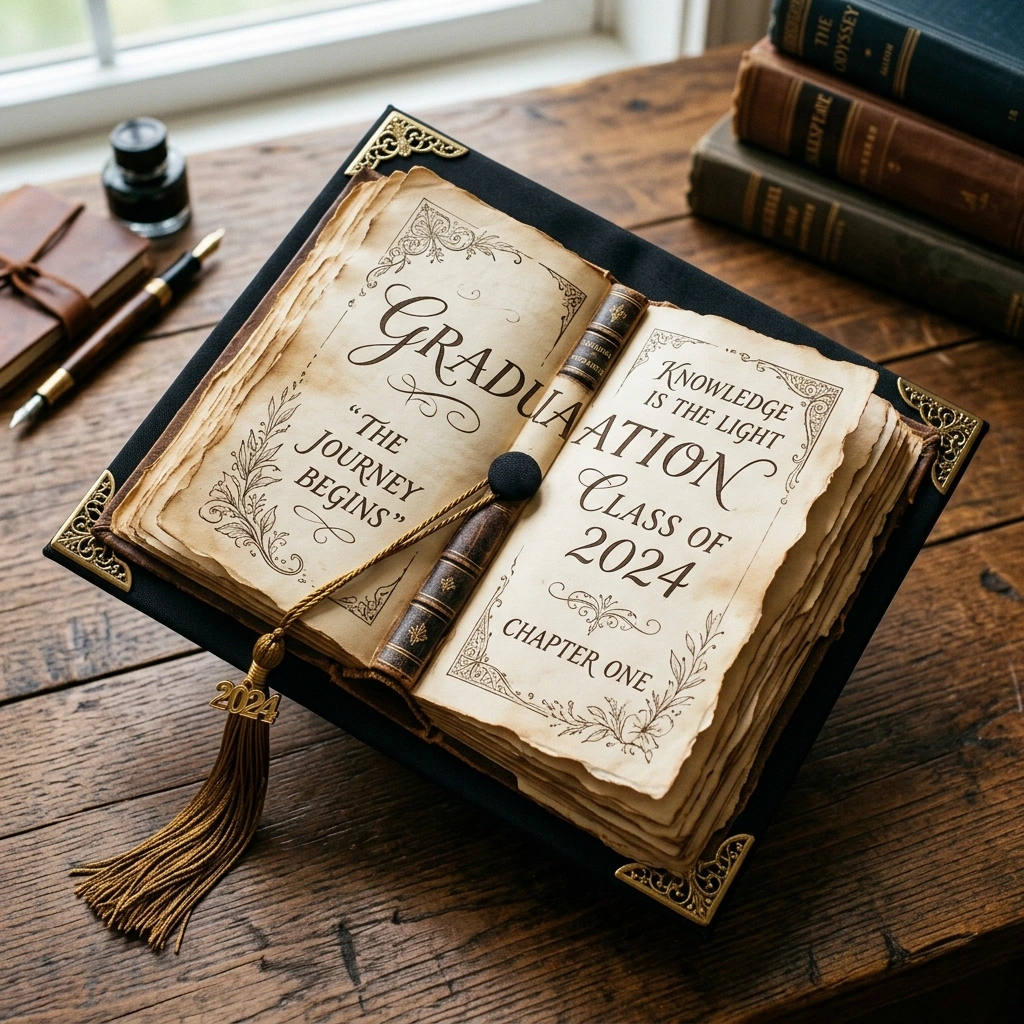 GRADUATION
"THE
JOURNEY
BEGINS"
KNOWLEDGE
IS THE LIGHT
CLASS OF
2024
CHAPTER ONE
2024
THE
ODYSSEY